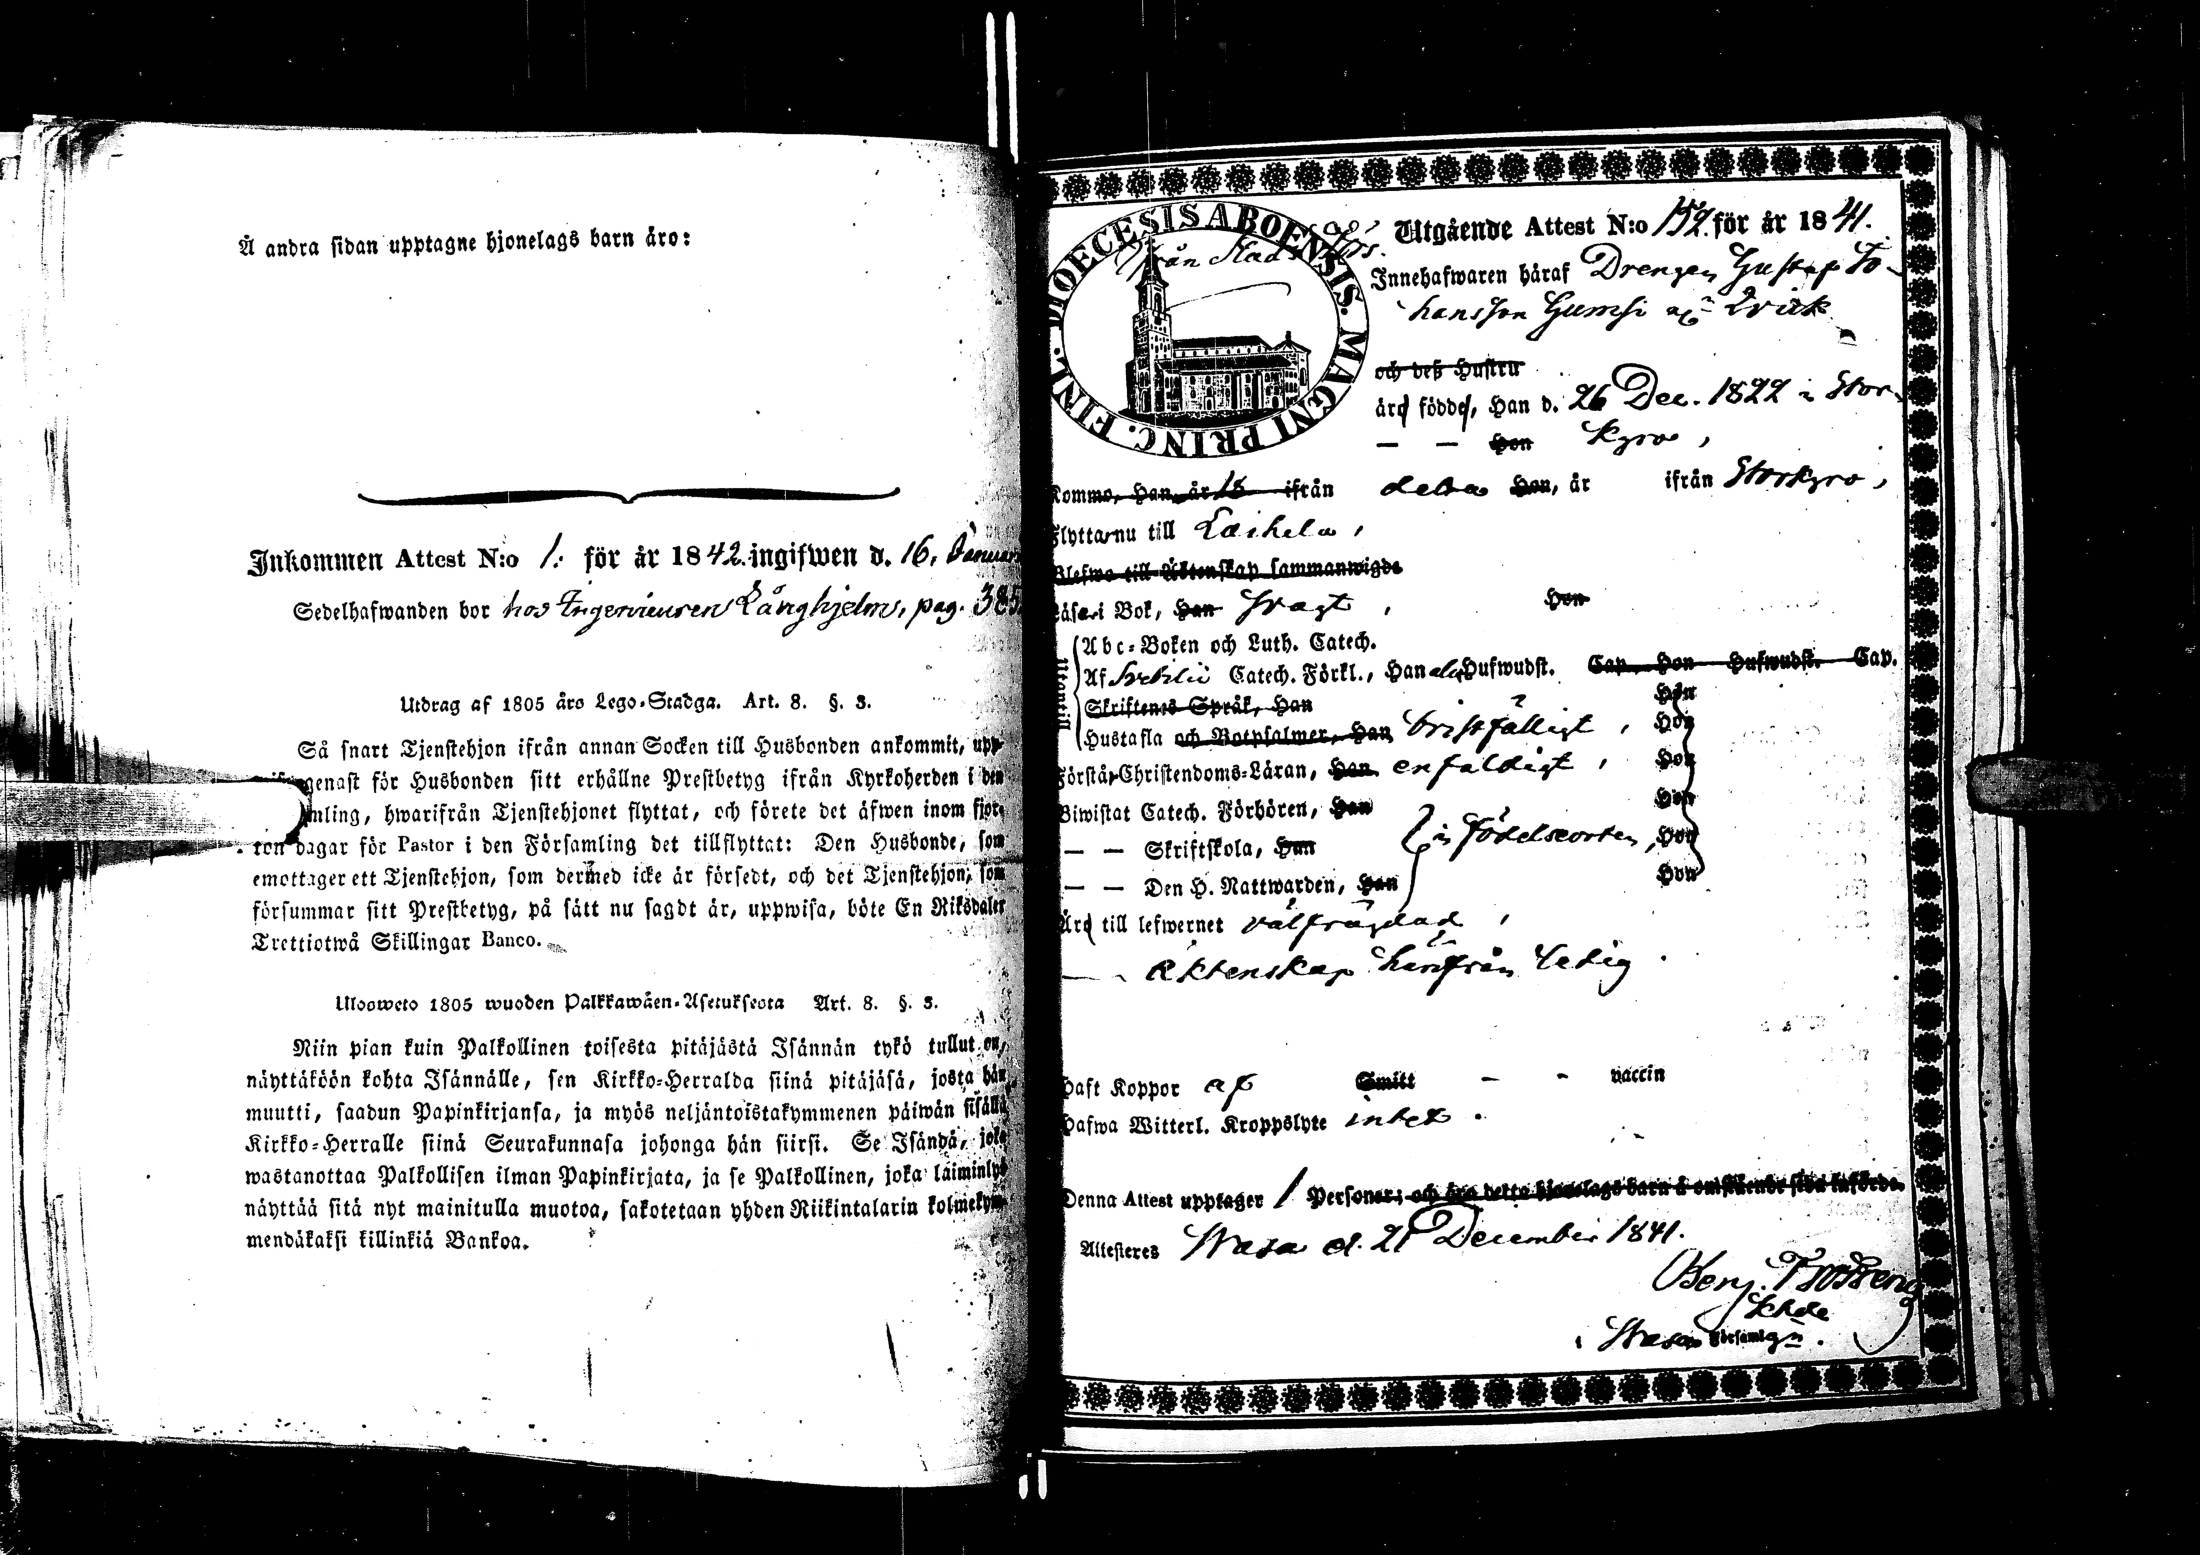 Å andra sidan upptagne hjonelags barn äro:
Inkommen Attest N:o 1. för år 1842. ingifwen d. 16. Januari
Sedelhafwanden bor hos Ingenieuren Långhjelm, pag. 385
Utdrag af 1805 års Lego-Stadga. Art. 8. §. 3.
Så snart Tjenstehjon ifrån annan Socken till Husbonden ankommit, upp-
genast för Husbonden sitt erhållne Prestbetyg ifrån Kyrkoherden i den
mling, hwarifrån Tjenstehjonet flyttat, och förete det äfwen inom fjor-
ton dagar för Pastor i den Församling det tillflyttat: Den Husbonde, som
emottager ett Tjenstehjon, som dermed icke är försedt, och det Tjenstehjon, som
försummar sitt Prestbetyg, på sätt nu sagdt är, uppwisa, böte En Riksdaler
Trettiotwå Skillingar Banco.
Ulosweto 1805 wuoden Palkkawäen-Asetuksesta Art. 8. §. 3.
Niin pian kuin Palkollinen toisesta pitäjästä Isännän tykö tullut on,
näyttäköön kohta Isännälle, sen Kirkko-Herralda siinä pitäjäsä, josta hän
muutti, saadun Papinkirjansa, ja myös neljäntoistakymmenen päiwän sisällä
Kirkko-Herralle siinä Seurakunnasa johonga hän siirsi. Se Isändä, joka
wastanottaa Palkollisen ilman Papinkirjata, ja se Palkollinen, joka laiminlyö
näyttää sitä nyt mainitulla muotoa, sakotetaan yhden Riikintalarin kolmekym-
mendäkaksi killinkiä Bankoa.
DIOECESIS ABOENSIS. MAGNI PRINC. FINL.
Utgående Attest N:o 152. för år 1841.
Innehafwaren häraf Drengen Gustaf Jo-
hansson Gumsi
och deß Hustru
äro födde, Han d. 26 Dec. 1822 i Stor-
— — Hon Kyro,
Kommo, Han, år 18 ifrån Hon, år ifrån Storkyro,
Flyttar nu till Laihela,
Blefwo till Äktenskap sammanwigde
Läsa i Bok, Han svagt, Hon
Utantill
Abc-Boken och Luth. Catech.
Af Svebilii Catech. Förkl., Han Hufwudst. Cap. Hon Hufwudst. Cap.
Skriftenes Språk, Han Hon
Hustafla och Botpsalmer, Han bristfälligt, Hon
Förstår Christendoms-Läran, Han enfaldigt, Hon
Biwistat Catech. Förhören, Han Hon
— — Skriftskola, Han i födelseorten, Hon
— — Den H. Nattwarden, Han Hon
Äro till lefwernet välfrägdad,
— Äktenskap härifrån ledig.
Haft Koppor af Smitt - - vaccin
Hafwa Witterl. Kroppslyte intet.
Denna Attest upptager 1 Personer; och äro detta hjonelags barn å omstående sida införde.
Attesteras Wasa d. 21 December 1841.
Benj. Frosterus
i Wasa Församlgn.